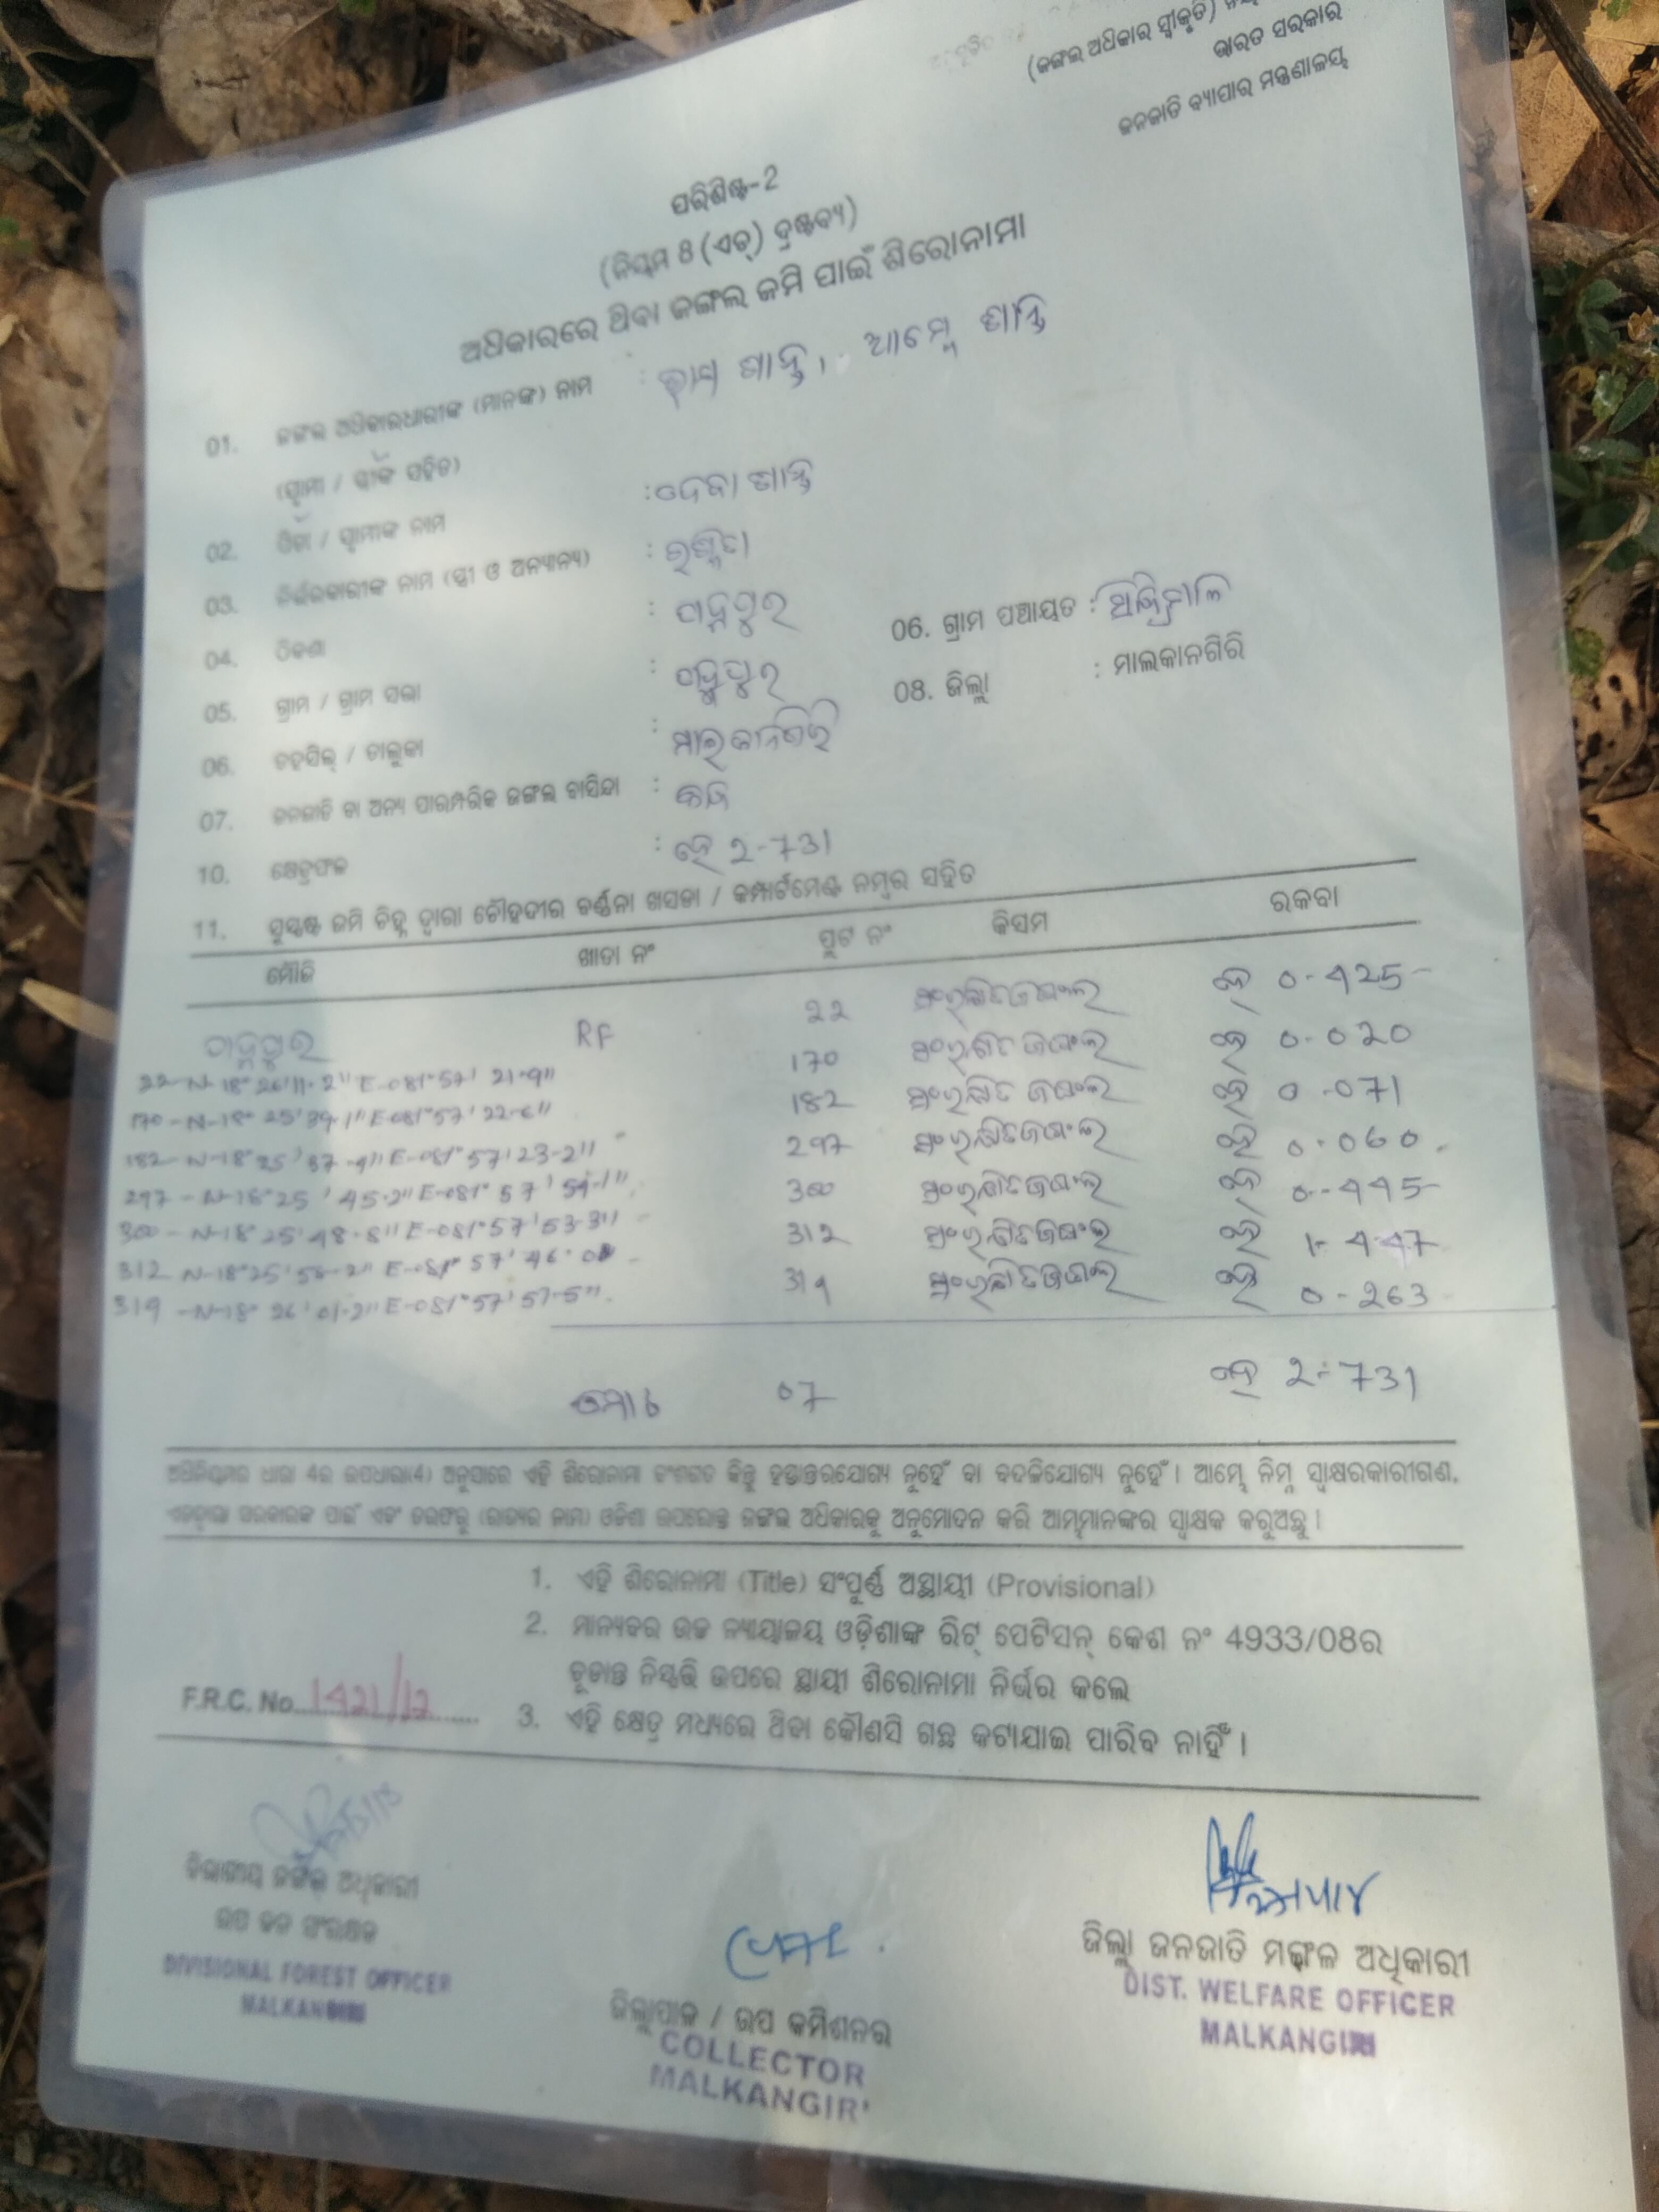 (ଜଙ୍ଗଲ ଅଧିକାର ସ୍ୱୀକୃତି)
ଭାରତ ସରକାର
ଜନଜାତି ବ୍ୟାପାର ମନ୍ତ୍ରଣାଳୟ
ପରିଶିଷ୍ଟ-2
(ନିୟମ 8 (ଏଚ୍) ଦ୍ରଷ୍ଟବ୍ୟ)
ଅଧିକାରରେ ଥିବା ଜଙ୍ଗଲ ଜମି ପାଇଁ ଶିରୋନାମା
01. ଜଙ୍ଗଲ ଅଧିକାରଧାରୀଙ୍କ (ମାନଙ୍କ) ନାମ :
(ସ୍ୱାମୀ / ସ୍ତ୍ରୀଙ୍କ ସହିତ)
02. ପିତା / ସ୍ୱାମୀଙ୍କ ନାମ :
03. ନିର୍ଭରକାରୀଙ୍କ ନାମ (ସ୍ତ୍ରୀ ଓ ଅନ୍ୟାନ୍ୟ) :
04. ଠିକଣା :
05. ଗ୍ରାମ / ଗ୍ରାମ ସଭା : 06. ଗ୍ରାମ ପଞ୍ଚାୟତ :
06. ତହସିଲ୍ / ତାଲୁକା : ମାଲକାନଗିରି 08. ଜିଲ୍ଲା : ମାଲକାନଗିରି
07. ଜନଜାତି ବା ଅନ୍ୟ ପାରମ୍ପରିକ ଜଙ୍ଗଲ ବାସିନ୍ଦା :
10. କ୍ଷେତ୍ରଫଳ : ହେ 2-731
11. ସୁସ୍ପଷ୍ଟ ଜମି ଚିହ୍ନ ଦ୍ୱାରା ଚୌହଦୀର ବର୍ଣ୍ଣନା ଖସଡା / କମ୍ପାର୍ଟମେଣ୍ଟ ନମ୍ବର ସହିତ
ମୌଜି ଖାତା ନଂ ପ୍ଲଟ ନଂ କିସମ ରକବା
RF 22 ସଂରକ୍ଷିତ ଜଙ୍ଗଲ ହେ 0-425
22-N-18° 26'11-2" E-081°57' 21-9"
170 ସଂରକ୍ଷିତ ଜଙ୍ଗଲ ହେ 0-020
170-N-18° 25'39-1" E-081°57' 22-6"
182 ସଂରକ୍ଷିତ ଜଙ୍ଗଲ ହେ 0-071
182-N-18°25'37-9" E-081°57'23-2"
297 ସଂରକ୍ଷିତ ଜଙ୍ଗଲ ହେ 0-060
297-N-18°25'45-2" E-081°57'54-1"
300 ସଂରକ୍ଷିତ ଜଙ୍ଗଲ ହେ 0-445
300-N-18°25'48-8" E-081°57'53-3"
312 ସଂରକ୍ଷିତ ଜଙ୍ଗଲ ହେ 1-447
312 N-18°25'58-2" E-081°57'46-0
319 ସଂରକ୍ଷିତ ଜଙ୍ଗଲ ହେ 0-263
319-N-18° 26'01-2" E-081°57'57-5"
ମୋଟ 07 ହେ 2-731
ଅଧିନିୟମର ଧାରା 4ର ଉପଧାରା(4) ଅନୁସାରେ ଏହି ଶିରୋନାମା ବଂଶଗତ କିନ୍ତୁ ହସ୍ତାନ୍ତରଯୋଗ୍ୟ ନୁହେଁ ବା ବଦଳିଯୋଗ୍ୟ ନୁହେଁ । ଆମ୍ଭେ ନିମ୍ନ ସ୍ୱାକ୍ଷରକାରୀଗଣ,
ଏତଦ୍ୱାରା ସରକାରଙ୍କ ପାଇଁ ଏବଂ ତରଫରୁ (ରାଜ୍ୟର ନାମ) ଓଡିଶା ଉପରୋକ୍ତ ଜଙ୍ଗଲ ଅଧିକାରକୁ ଅନୁମୋଦନ କରି ଆମ୍ଭମାନଙ୍କର ସ୍ୱାକ୍ଷକ କରୁଅଛୁ ।
1. ଏହି ଶିରୋନାମା (Title) ସଂପୂର୍ଣ୍ଣ ଅସ୍ଥାୟୀ (Provisional)
2. ମାନ୍ୟବର ଉଚ୍ଚ ନ୍ୟାୟାଳୟ ଓଡ଼ିଶାଙ୍କ ରିଟ୍ ପେଟିସନ୍ କେଶ ନଂ 4933/08ର
ଚୂଡାନ୍ତ ନିସ୍ପତ୍ତି ଉପରେ ସ୍ଥାୟୀ ଶିରୋନାମା ନିର୍ଭର କଲେ
F.R.C. No. 1421/12
3. ଏହି କ୍ଷେତ୍ର ମଧ୍ୟରେ ଥିବା କୌଣସି ଗଛ କଟାଯାଇ ପାରିବ ନାହିଁ ।
ବିଭାଗୀୟ ଜଙ୍ଗଲ ଅଧିକାରୀ
ଉପ ବନ ସଂରକ୍ଷକ
DIVISIONAL FOREST OFFICER
MALKANGIRI
ଜିଲ୍ଲାପାଳ / ଉପ କମିଶନର
COLLECTOR
MALKANGIRI
ଜିଲ୍ଲା ଜନଜାତି ମଙ୍ଗଳ ଅଧିକାରୀ
DIST. WELFARE OFFICER
MALKANGIRI